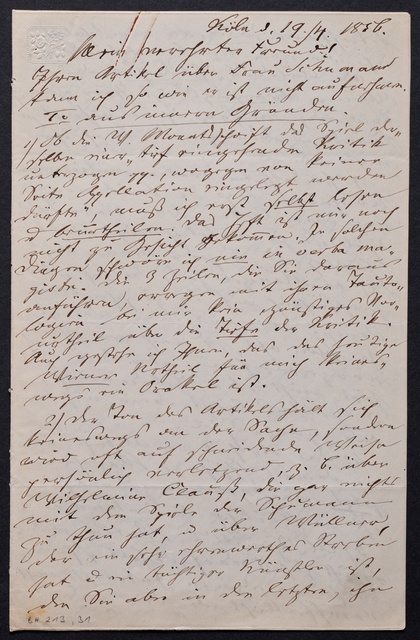 Köln d. 19./4. 1856.
Mein verehrter Freund!
Ihren Artikel über Frau Schumann
kann ich so wie er ist nicht aufnehmen.
Ia aus innern Gründen
1) Ob die W. Monatsschrift das Spiel der-
selben einer „tief eingehenden Kritik
unterzogen pp., wogegen von keiner
Seite Apellation eingelegt werden
dürfte", muß ich erst selbst lesen
u beurtheilen, das Heft ist mir noch
nicht zu Gesicht gekommen. In solchen
Dingen schwöre ich nie in verba ma-
gistri. Die 3 Zeilen, die Sie daraus
anführen, erregen mit ihren Tauto-
logien bei mir kein günstiges Vor-
urtheil über die Tiefe der Kritik.
Auch gestehe ich Ihnen, daß das heutige
Wiener Urtheil für mich keines-
wegs ein Orakel ist.
2) Der Ton des Artikels hält sich
keineswegs an der Sache, sondern
wird oft auf schneidende Weise
persönlich verletzend, z. b. über
Wilhelmine Clauß, die gar nichts
mit dem Spiele der Schumann
zu thun hat, u über Wüllner,
der ein sehr ehrenwerthes Streben
hat u ein tüchtiger Künstler ist,
den Sie aber in den letzten, ihn